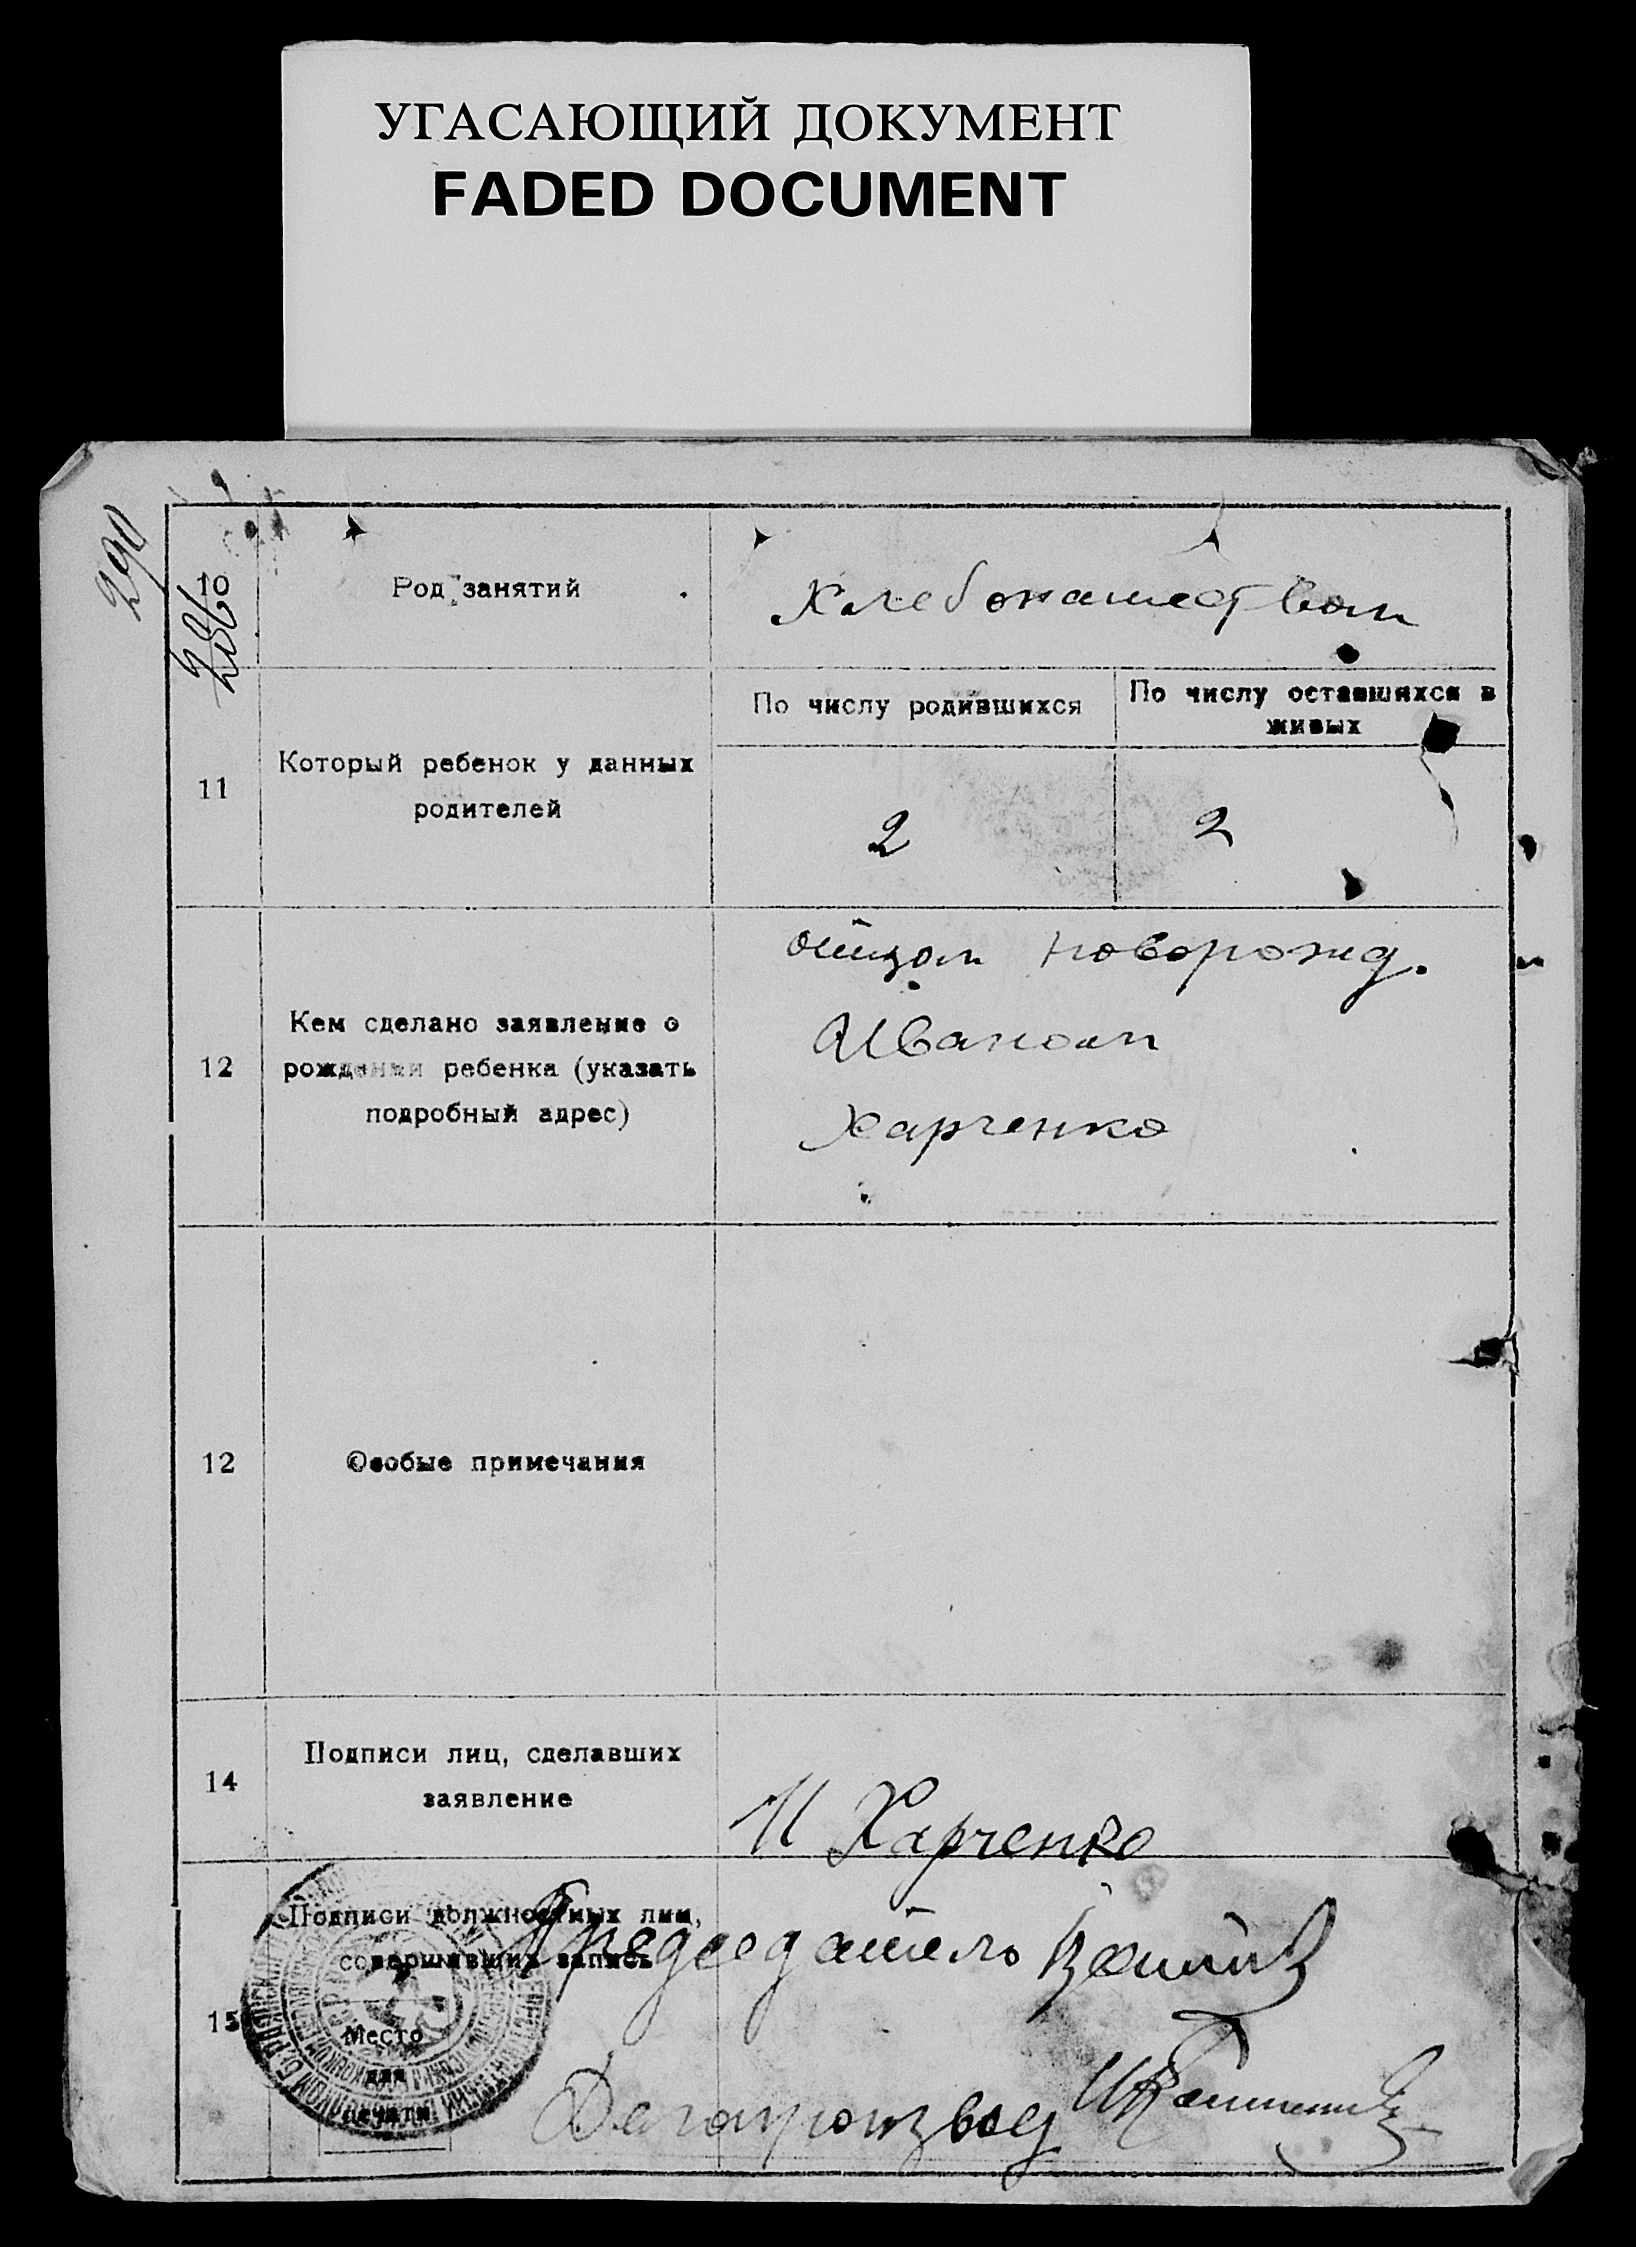 УГАСАЮЩИЙ ДОКУМЕНТ
FADED DOCUMENT
290
286
10
Род занятий
Хлебопашеством
11
Который ребенок у данных
родителей
По числу родившихся
По числу оставшихся в
живых
2
2
12
Кем сделано заявление о
рождении ребенка (указать
подробный адрес)
отцом новорожд.
Иваном
Харченко
12
Особые примечания
14
Подписи лиц, сделавших
заявление
И Харченко
15
Подписи должностных лиц,
совершивших запись
Место
для
печати
Председатель
Делопроизвод